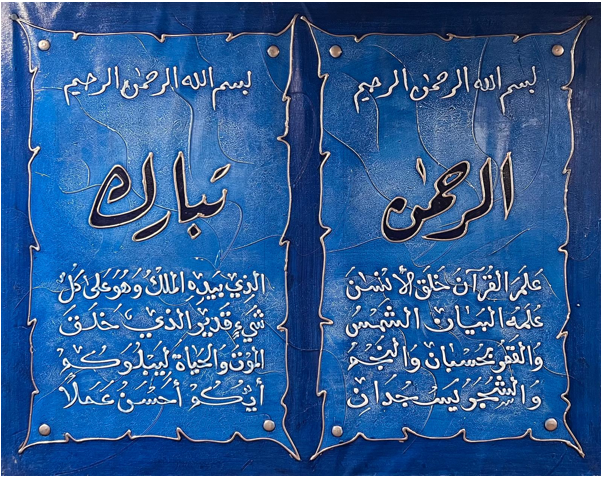 بسم الله الرحمن الرحيم
الرحمن
عَلمَ القُرآنَ خَلقَ الأنسٰنَ
عَلمهُ البَيانَ الشمسُ
وَالقمرُ بحُسبانٍ وَالنجمُ
وَالشجرُ يَسجُدانِ
بسم الله الرحمن الرحيم
تبارك
الذِي بيَدِهِ الملكُ وَهُوَ عَلىٰ كلُ
شَيءٍ قديرٌ الذي خَلقَ
الموتَ والحَياةَ ليَبلُوَكُم
أيُكُم أحسَنُ عَمَلاً